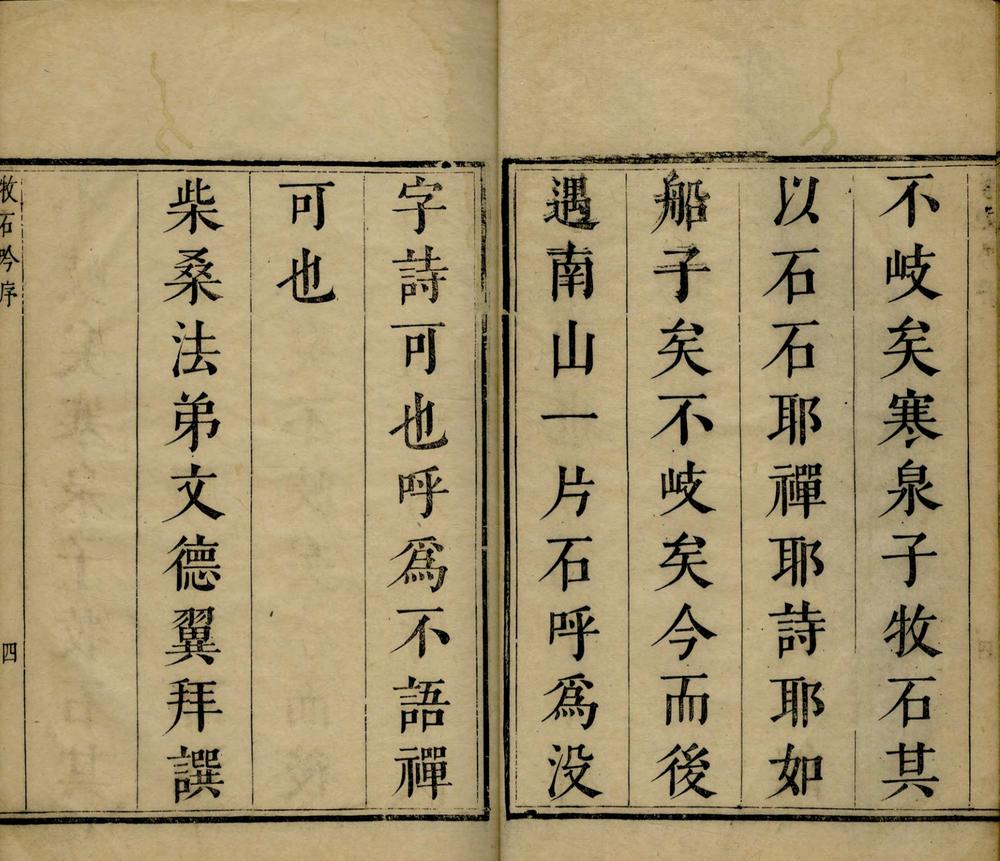 不岐矣寒泉子牧石其
以石石耶禪耶詩耶如
船子矣不岐矣今而後
遇南山一片石呼爲没
字詩可也呼爲不語禪
可也
柴桑法弟文德翼拜譔
牧石吟序
四